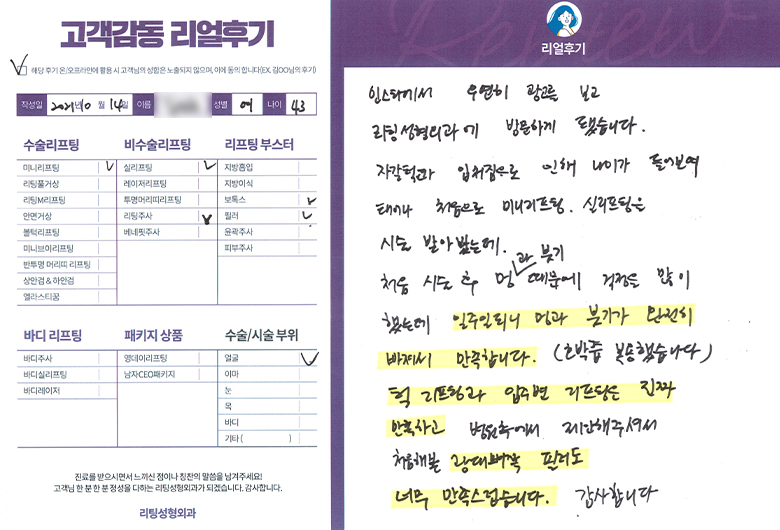 고객감동 리얼후기
해당 후기 온/오프라인에 활용 시 고객님의 성함은 노출되지 않으며, 이에 동의 합니다(EX. 김OO님의 후기)
작성일 2021년 10 월 14일 이름 성별 여 나이 43
수술리프팅
미니리프팅
리팅풀거상
리팅M리프팅
안면거상
볼턱리프팅
미니브이리프팅
반투명 머리띠 리프팅
상안검 & 하안검
엘라스티꿈
비수술리프팅
실리프팅
레이저리프팅
투명머리띠리프팅
리팅주사
베네핏주사
리프팅 부스터
지방흡입
지방이식
보톡스
필러
윤곽주사
피부주사
바디 리프팅
바디주사
바디실리프팅
바디레이저
패키지 상품
영데이리프팅
남자CEO패키지
수술/시술 부위
얼굴
이마
눈
목
바디
기타 ( )
진료를 받으시면서 느끼신 점이나 칭찬의 말씀을 남겨주세요!
고객님 한 분 한 분 정성을 다하는 리팅성형외과가 되겠습니다. 감사합니다.
리팅성형외과
Review
리얼후기
인스타에서 우연히 광고를 보고
리팅성형외과에 방문하게 됐습니다.
자갈턱과 입처짐으로 인해 나이가 들어보여
태어나 처음으로 미니리프팅. 실리프팅을
시술 받아봤는데.
처음 시술 후 멍과 붓기 때문에 걱정을 많이
했는데 일주일되니 멍과 붓기가 완전히
빠져서 만족합니다. (호박즙 복용했습니다)
턱 리프팅과 입주변 리프팅은 진짜
만족하고 병원측에서 제안해주셔서
처음해본 광대뼈쪽 필러도
너무 만족스럽습니다. 감사합니다